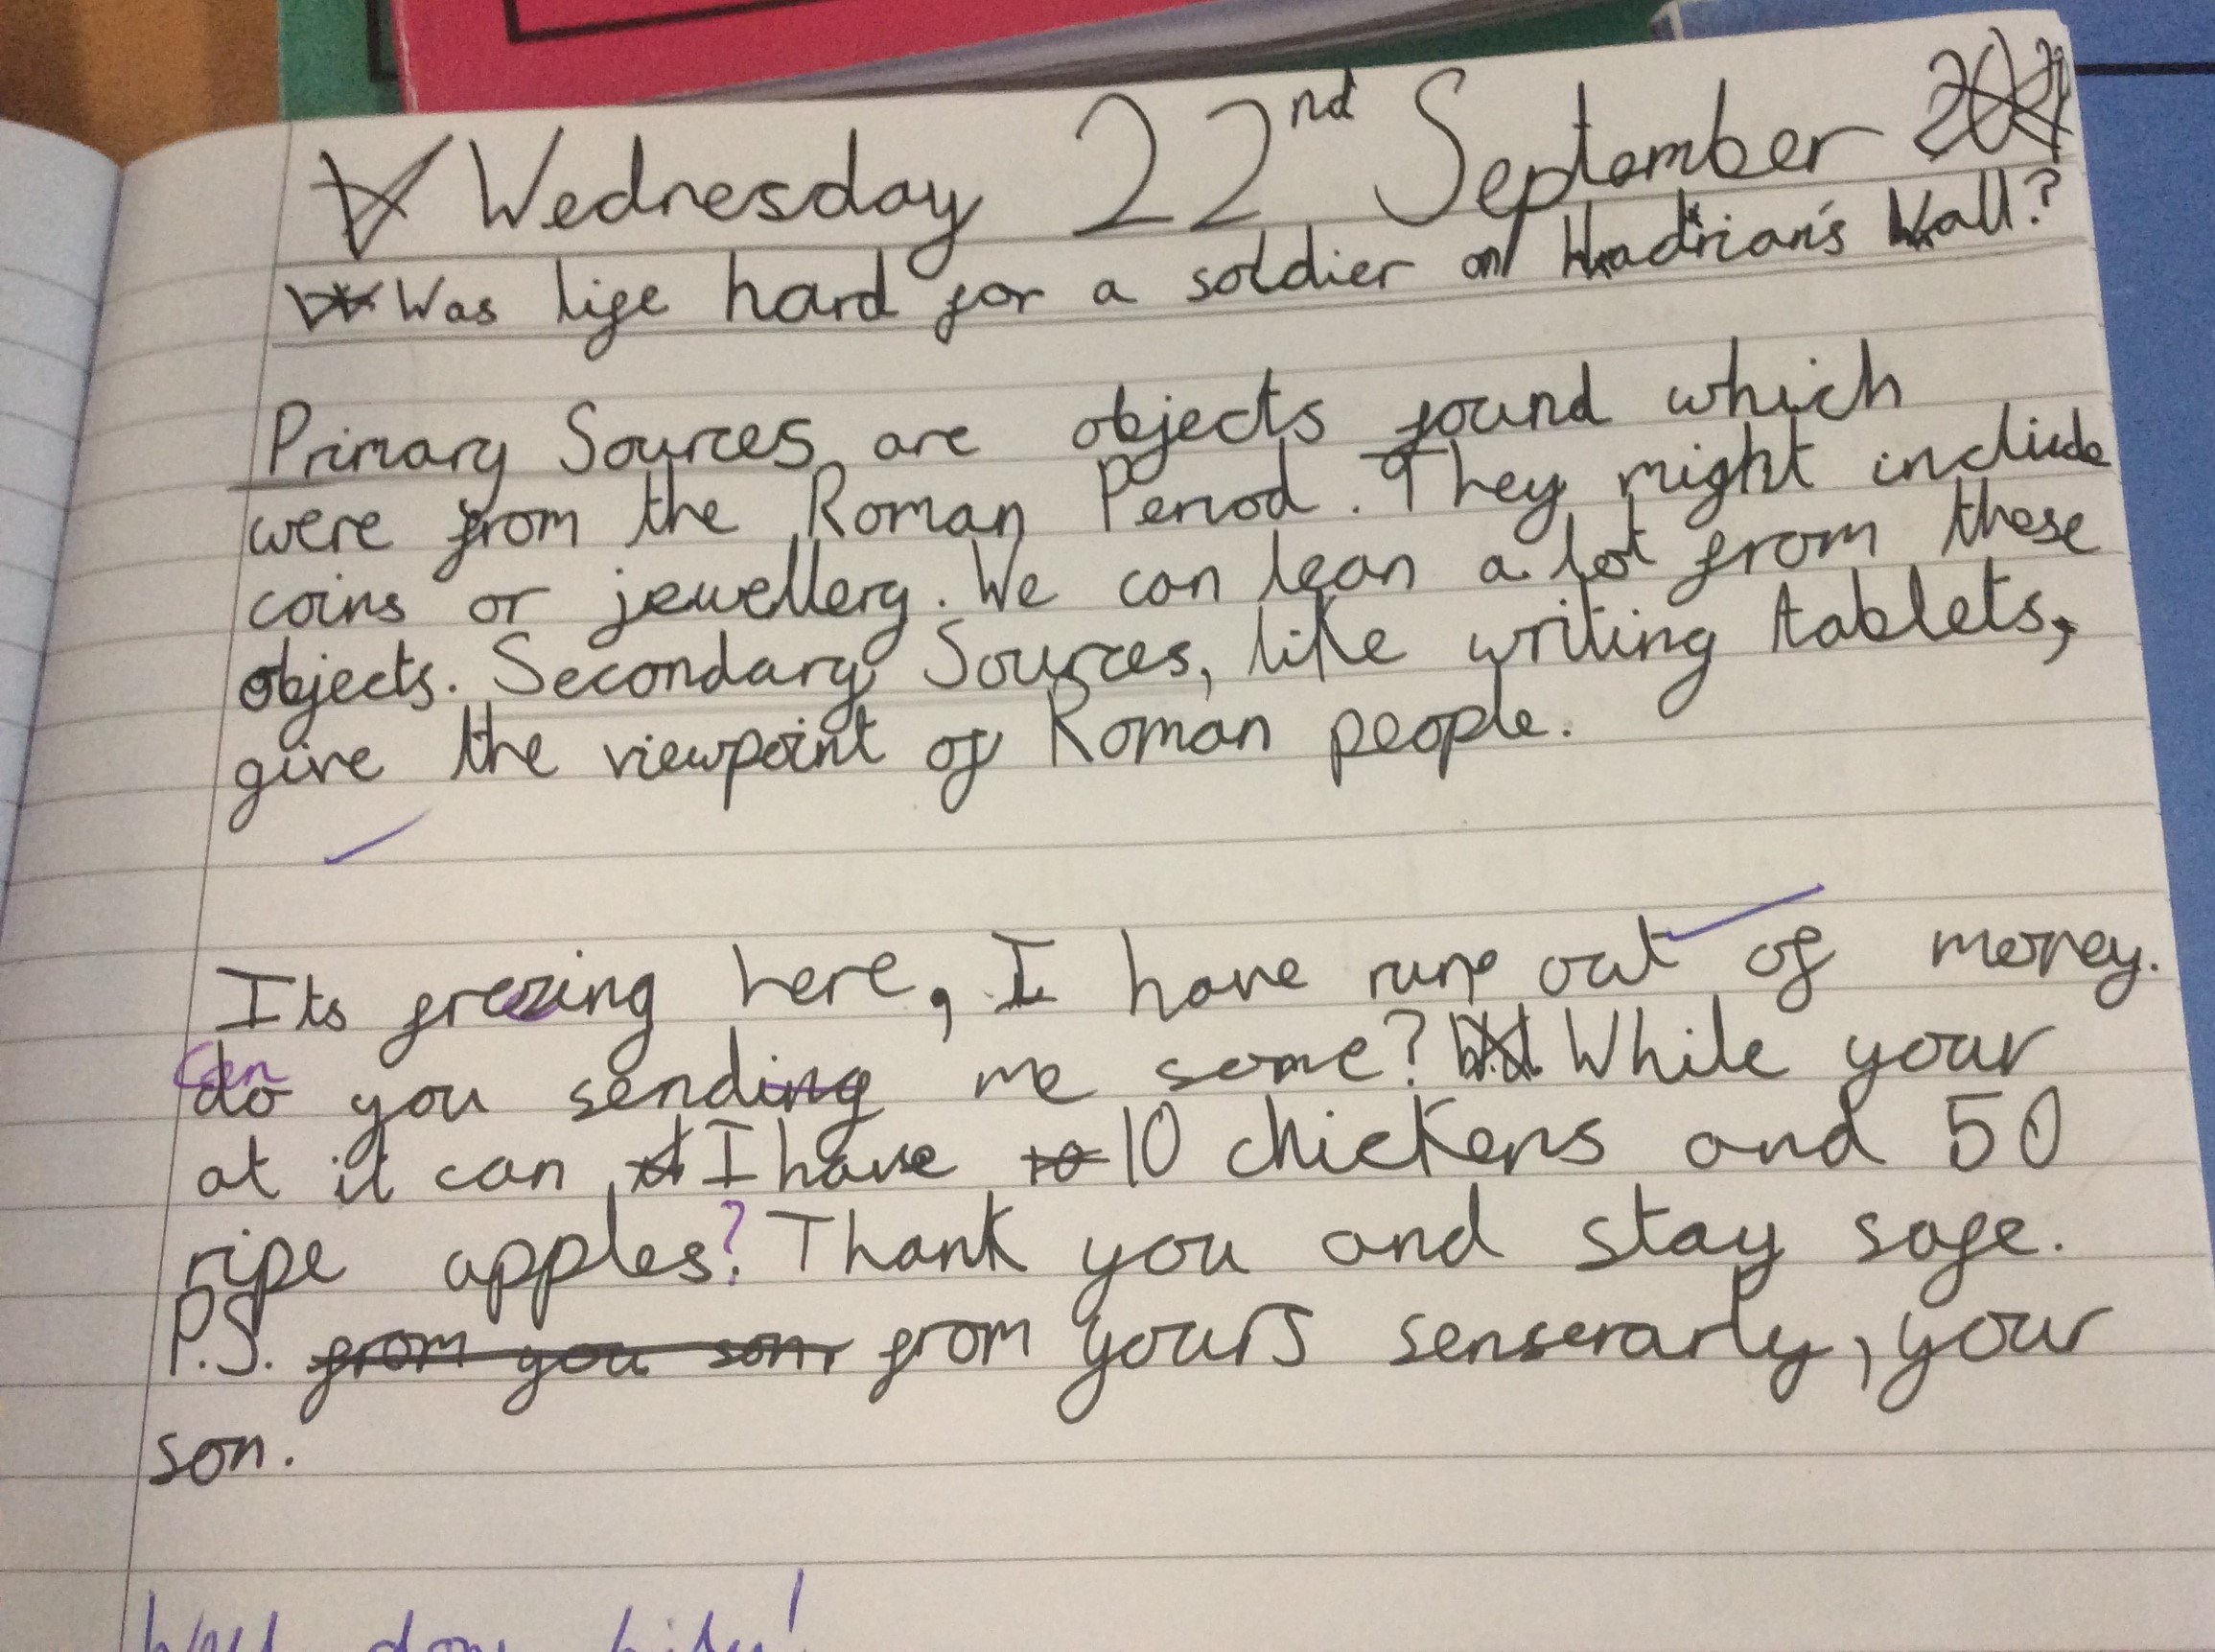 Wednesday 22nd September
Was life hard for a soldier on Hadrian's Wall?
Primary Sources are objects found which
were from the Roman Period. They might include
coins or jewellery. We can lean a lot from these
objects. Secondary Sources, like writing tablets,
give the viewpoint of Roman people.
Its freezing here, I have run out of money.
Can
do you sending me some? While your
at it can I have 10 chickens and 50
ripe apples? Thank you and stay safe.
P.S. from you son, from yours senserarly, your
son.
Well done